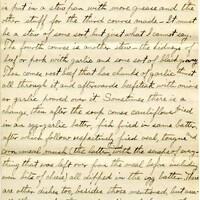 is put in a stew pan with more grease and the
other stuff for the third course made. It must
be a stew of some sort but just what I cannot say.
The fourth course is another stew - the kidneys of
beef or pork with garlic and some sort of black gravy.
Then comes roast beef that has chunks of garlic
all through it and afterwards beefsteak with mince
garlic poured over it. Sometimes there is a
change then after the soup comes cauliflower fried
in an egg-garlic batter, fish fried in same batter
after which follows respectively fried veal, tongue &
corn meal mush (the batter with the seeds of every-
thing that was left over from the meal before including
) all dipped in the egg batter. There
are other dishes too, besides those mentioned, but as a